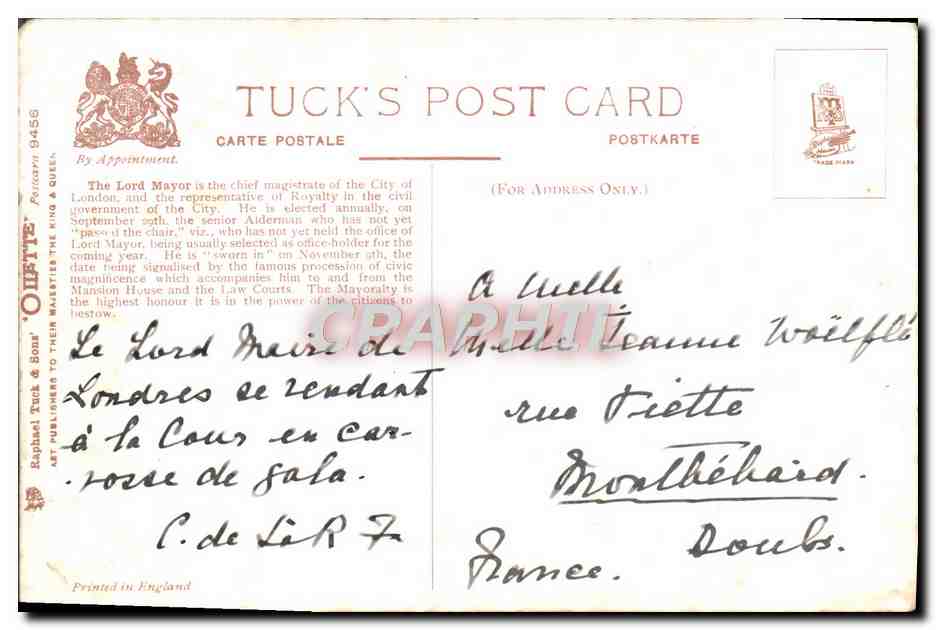 TUCK'S POST CARD
CARTE POSTALE
POSTKARTE
By Appointment.
TRADE MARK
(FOR ADDRESS ONLY.)
Raphael Tuck & Sons' "OILETTE" Postcard 9456
ART PUBLISHERS TO THEIR MAJESTIES THE KING & QUEEN
The Lord Mayor is the chief magistrate of the City of
London, and the representative of Royalty in the civil
government of the City. He is elected annually, on
September 29th, the senior Alderman who has not yet
"passed the chair," viz., who has not yet held the office of
Lord Mayor, being usually selected as office-holder for the
coming year. He is "sworn in" on November 9th, the
date being signalised by the famous procession of civic
magnificence which accompanies him to and from the
Mansion House and the Law Courts. The Mayoralty is
the highest honour it is in the power of the citizens to
bestow.
Le Lord Maire de
Londres se rendant
à la Cour en car-
rosse de gala.
C. de
Printed in England
A Melle
Melle Jeanne Woëlflé
rue Piette
Montbéliard.
Doubs.
France.
CRAPHIL